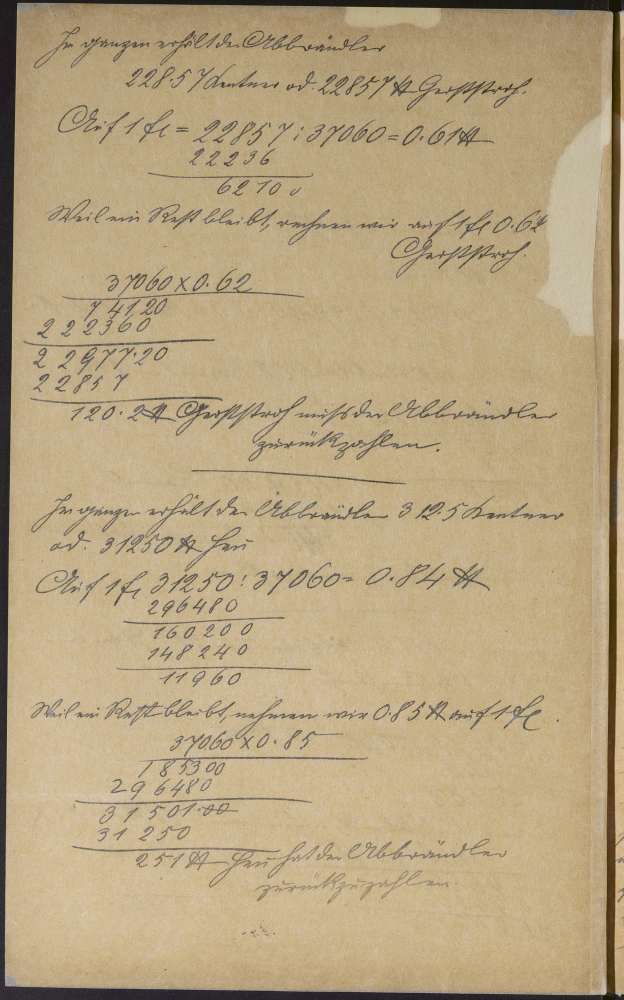 Im ganzen erhält der Abbrändler
228·57 Zentner od. 22857 ℔ Gerststroh.
Auf 1 fl = 22857 : 37060 = 0·61 ℔
22236
62100
Weil ein Rest bleibt, rechnen wir auf 1 fl 0·62
Gerststroh.
37060 x 0·62
74120
222360
22977·20
22857
120·2 ℔ Gerststroh muß der Abbrändler
zurückzahlen.
Im ganzen erhält der Abbrändler 312·5 Zentner
od. 31250 ℔ Heu
Auf 1 fl 31250 : 37060 = 0·84 ℔
296480
160200
148240
11960
Weil ein Rest bleibt, nehmen wir 0·85 ℔ auf 1 fl.
37060 x 0·85
185300
296480
31501·00
31250
251 ℔ Heu hat der Abbrändler
zurückzuzahlen.